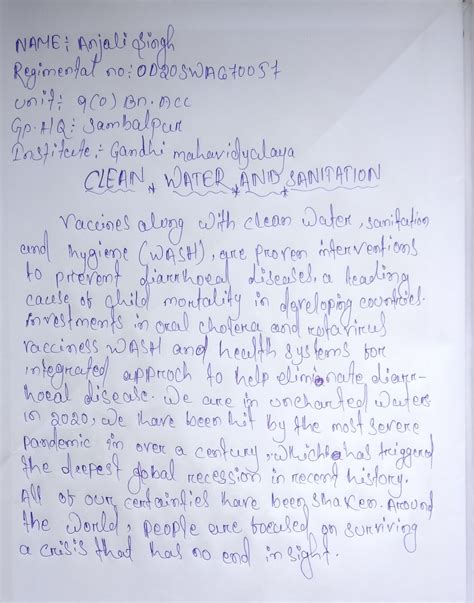 NAME: Anjali Singh
Regimental no: OD20SWAG70057
Unit: 9(O) Bn. NCC
Gp. HQ: Sambalpur
Institute:- Gandhi mahavidyalaya
CLEAN WATER AND SANITATION
Vaccines along with clean water, sanitation
and hygiene (WASH), are proven interventions
to prevent diarrhoeal diseases, a leading
cause of child mortality in developing countries.
investments in oral cholera and rotavirus
vacciness WASH and health systems for
integrated approch to help eliminate diarr-
hoeal disease. We are in uncharted waters
in 2020, we have been hit by the most severe
pandemic in over a century, which has triggered
the deepest global recession in recent history.
All of our certainties have been shaken. Around
the world, people are focused on surviving
a crisis that has no end in sight.